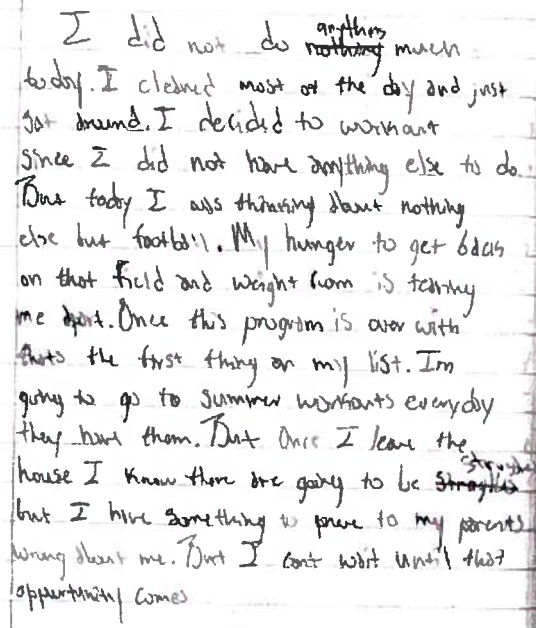 I did not do nothing anything much
today. I cleaned most of the day and just
sat around. I decided to workout
since I did not have anything else to do.
But today I was thinking about nothing
else but football. My hunger to get back
on that field and weight room is tearing
me apart. Once this program is over with
thats the first thing on my list. Im
going to go to summer workouts everyday
they have them. But Once I leave the
house I know there are going to be struggles
but I have something to prove to my parents
wrong about me. But I cant wait until that
opportunity comes